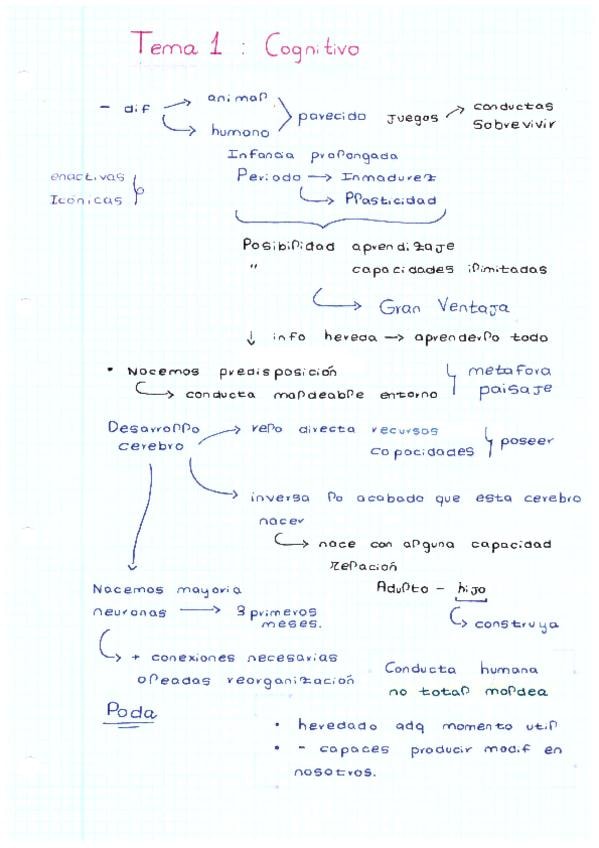 Tema 1 : Cognitivo
- dif → animal
↳ humano
parecido juegos → conductas
sobrevivir
Infancia prolongada
enactivas
Icónicas
Periodo → Inmadurez
↳ Plasticidad
Posibilidad aprendizaje
" capacidades ilimitadas
↳ Gran Ventaja
↓ info hereda → aprenderlo todo
• Nacemos predisposición
↳ conducta moldeable entorno
metafora
paisaje
Desarrollo
cerebro
→ relo directa recursos
capacidades
poseer
→ inversa lo acabado que esta cerebro
nacer
↳ nace con alguna capacidad
relación
Nacemos mayoria
neuronas → 3 primeros
meses.
Adulto - hijo
↳ construya
↳ + conexiones necesarias
oleadas reorganización
Poda
Conducta humana
no total moldea
• heredado adq momento util
• - capaces producir modif en
nosotros.